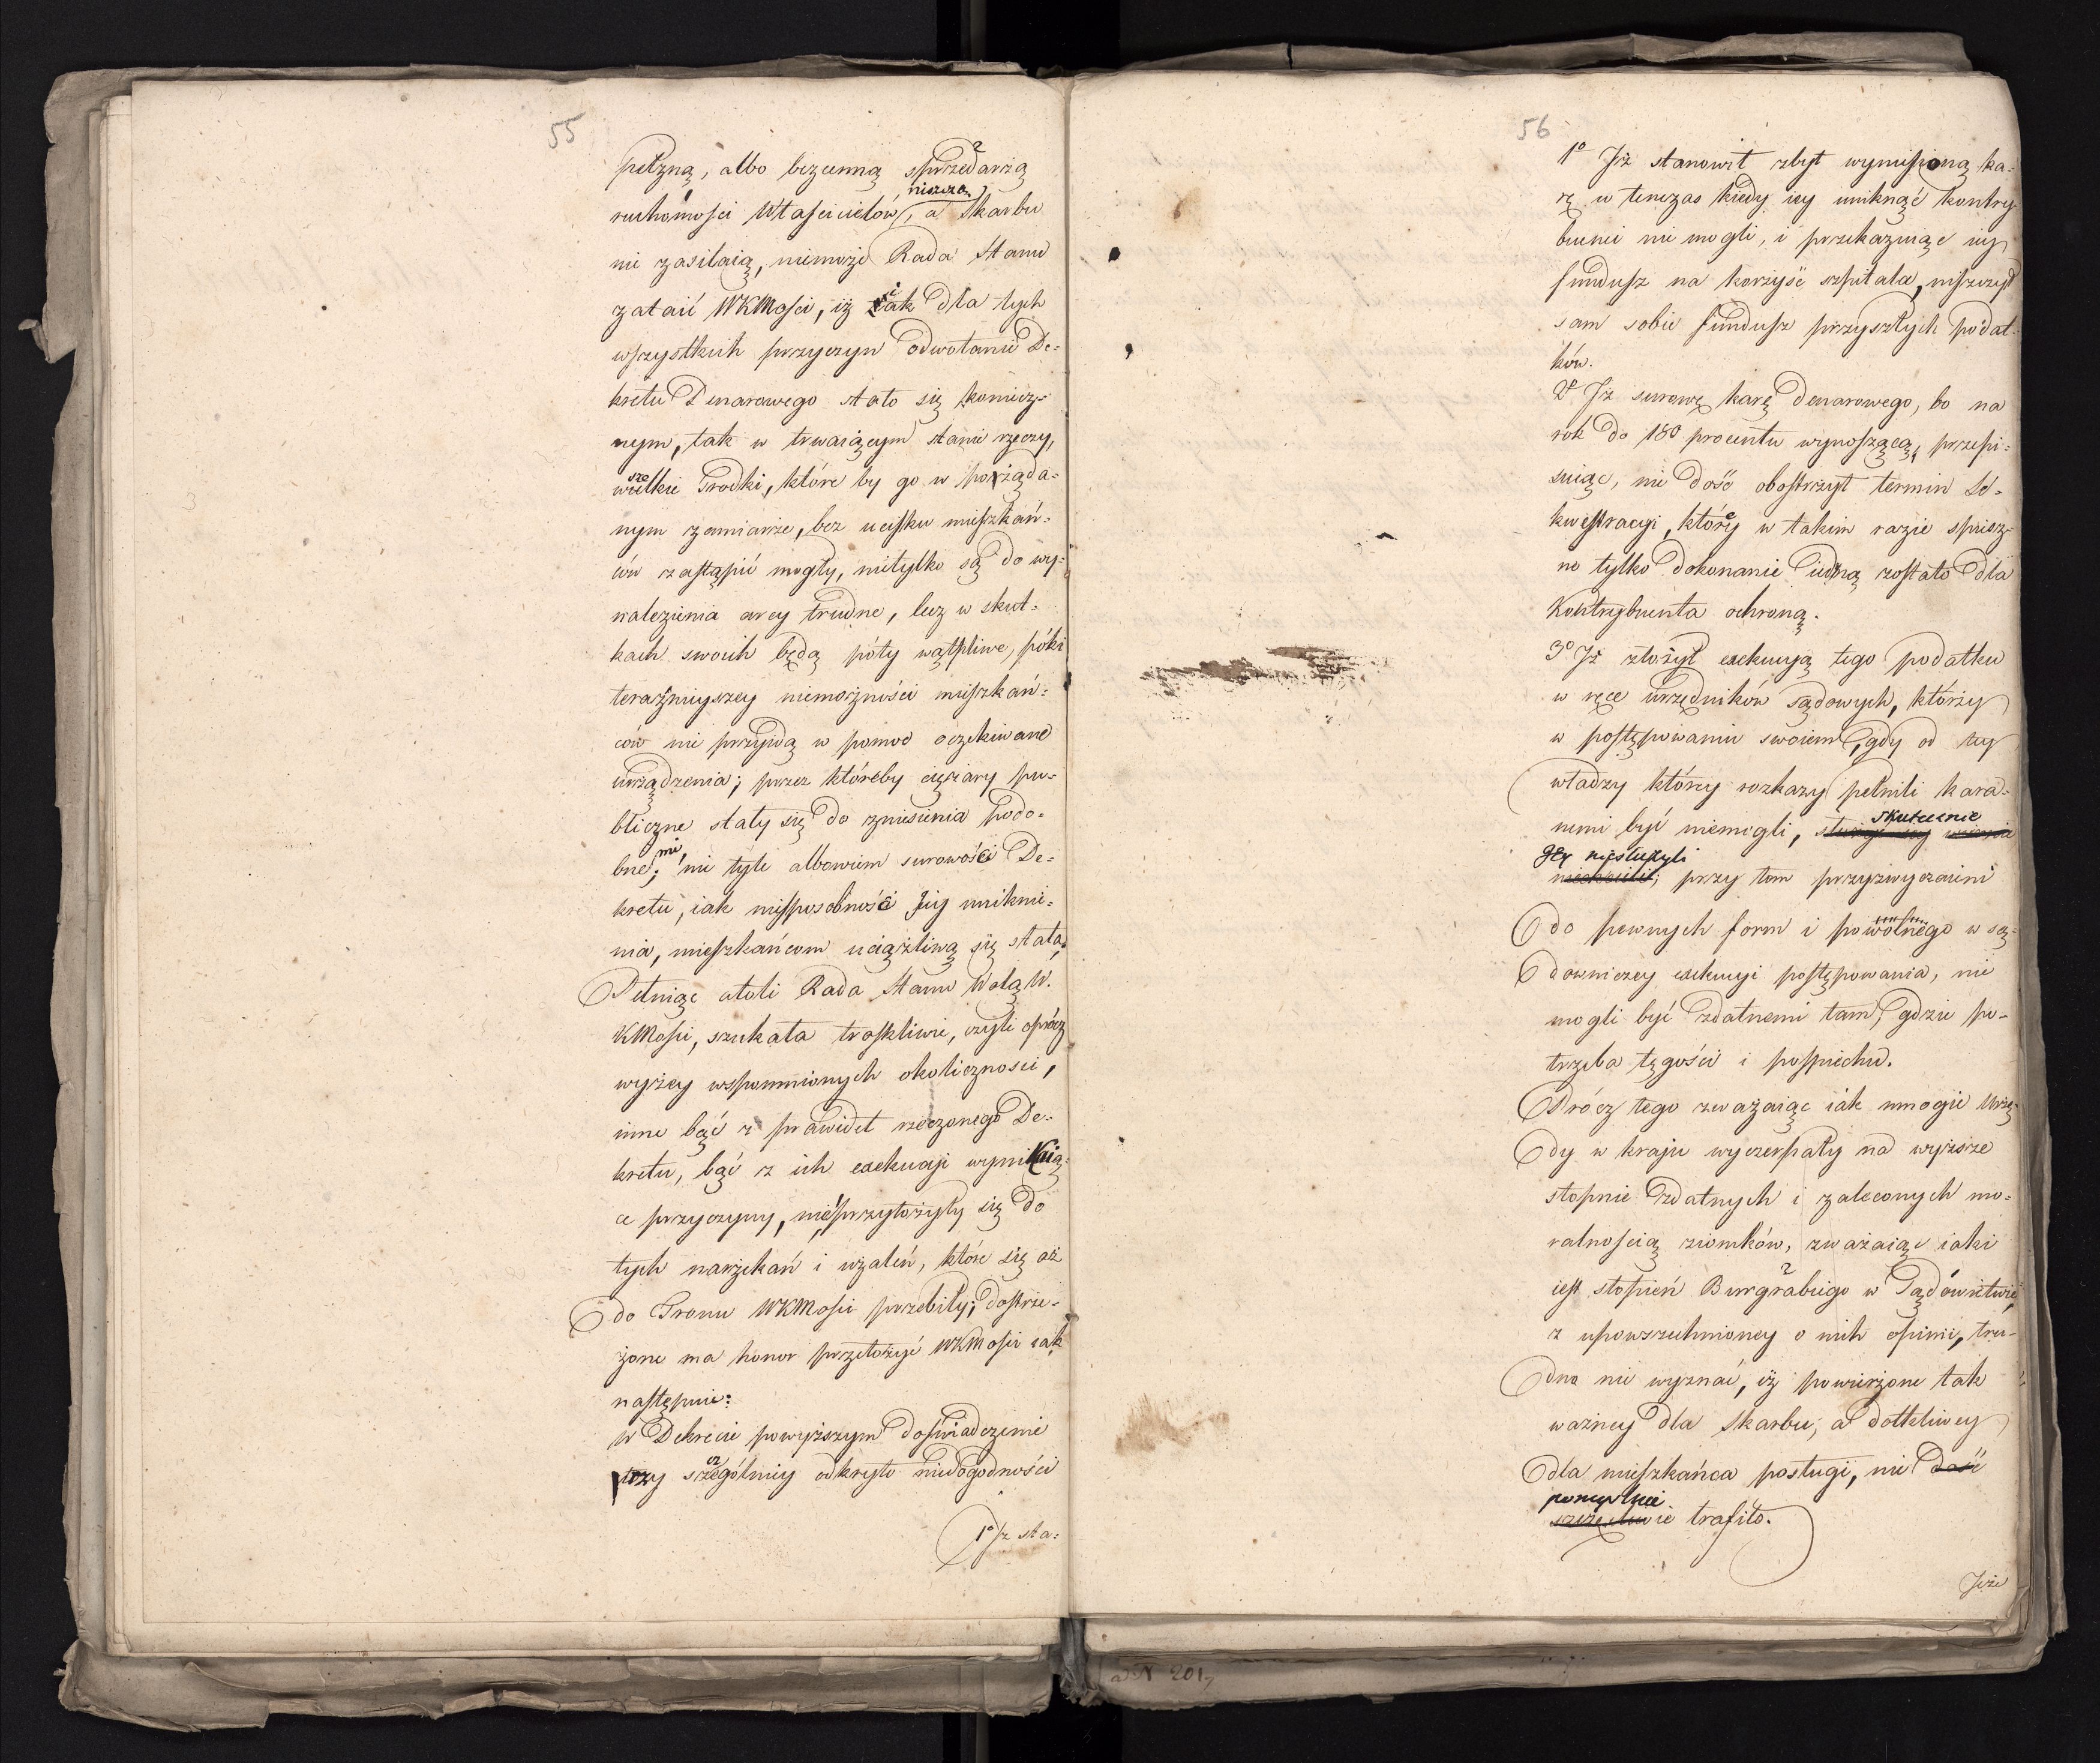 55
pełzną, albo bezcenną sprzedarzą
niszcza
ruchomości Właścicielów, a Skarbu
nie zasilaią, niemoże Rada Stanu
zataić WKMości, iż iak dla tych
wszystkich przyczyn odwołanie De-
kretu Denarowego stało się koniecz-
nym, tak w trwaiącym stanie rzeczy,
wszelkie Srodki, które by go w pożąda-
nym zamiarze, bez ucisku mieszkań-
ców zastąpić mogły, nietylko są do wy-
nalezienia arcy trudne, lecz w skut-
kach swoich będą póty wątpliwe, póki
teraźnieyszey niemożności mieszkań-
ców nie przyidą w pomoc oczekiwane
urządzenia; przez któreby ciężary pu-
bliczne stały się do zniesienia podo-
bne; nie tyle albowiem surowości De-
kretu, iak niesposobności Jey uniknie-
nia, mieszkańcom uciążliwą się stała,
Pełniąc atoli Rada Stanu Wolą W.
KMości, szukała troskliwie, czyli oprócz
wyżey wspomnionych okoliczności,
inne bąć z prawideł rzeczonego De-
kretu, bąć z ich exekucyi wynikaią-
ce przyczyny, nieprzyłożyły się do
tych narzekań i użaleń, które się aż
do Tronu WKMości przebiły; dostrze-
żone ma honor przełożyć WKMości iak
następnie:
W Dekrecie powyższym doświadczenie
trzy szczególniey odkryło niedogodności
1º Iż sta-
56
1º Iż stanowił zbyt wymiesioną ka-
rę w tenczas kiedy iey uniknąć kontry
buenci nie mogli, i przekazuiąc iey
fundusz na korzyść szpitala, niszczył
sam sobie fundusz przyszłych podat-
ków.
2º Iż surowę karę denarowego, bo na
rok do 180 procentu wynoszącą, przepi-
suiąc, nie dość obostrzył termin Se-
kwestracyi, którey w takim razie spiesz-
ne tylko dokonanie iedną zostało dla
Kontrybuenta ochroną.
3º Iż złożył exekucyą tego podatku
w ręce urzędników sądowych, którzy
w postępowaniu swoiem, gdy od tey
władzy którey rozkazy pełnili kara-
nemi być niemogli, skutecznie
Jey niesłużyli
; przy tem przyzwyczaieni
do pewnych form i powolnego w są-
downiczey exekucyi postępowania, nie
mogli być zdatnemi tam, gdzie po-
trzeba tęgości i pospiechu.
Prócz tego zważaiąc iak mnogie Urzę-
dy w kraju wyczerpały na wyższe
stopnie zdatnych i zaleconych mo-
ralnością ziomków, zważaiąc iaki
iest stopień Burgrabiego w Sądownictwie,
z upowszechnioney o nich opinii, tru-
dno nie wyznać, iż powierzone tak
ważney dla Skarbu, a dotkliwey
dla mieszkańca posługi, nie dość
pomyślnie
szczęśliwie trafiło.
Jeże
ad N 201,